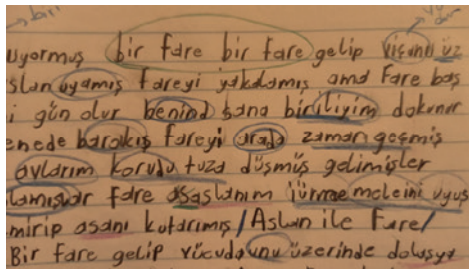 bari
uyormuş bir fare bir fare gelip vicanü üz
slan uyamış fareyi yakalamış ama fare baş
i gün olur benind sana birciliyim dokunur
enede barakış fareyi arada zaman geşmiş
avlarım korudu tuza düşmüş gelimişler
lamışlar fare asaslanım
mirip asanı kutarımış / Aslan ile Fare /
Bir fare gelip vücuduunu üzerinde dolaşya